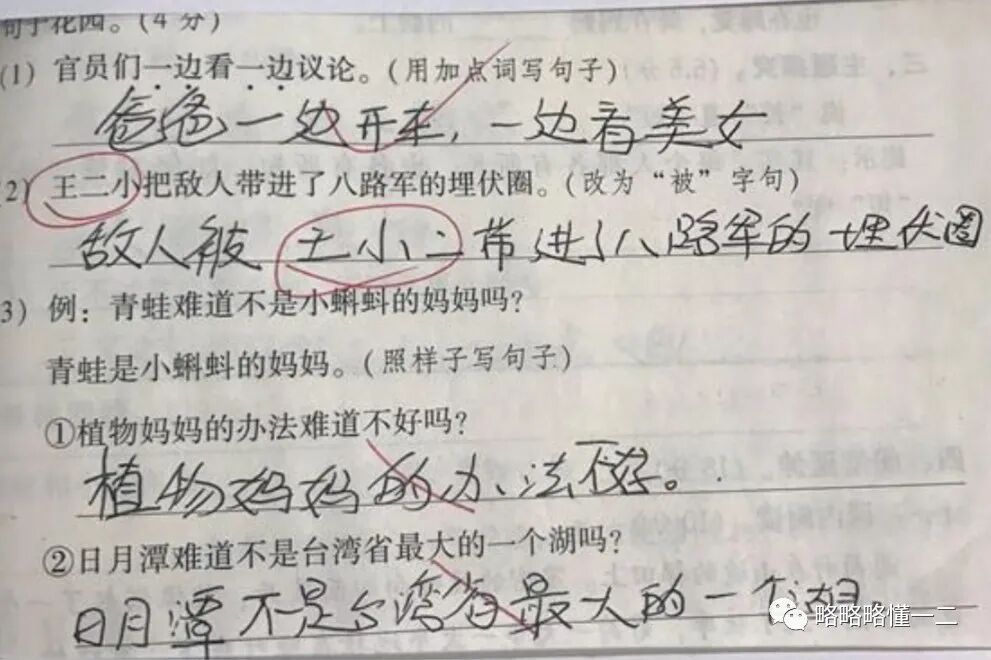 句子花园。(4分)
(1) 官员们一边看一边议论。(用加点词写句子)
爸爸一边开车,一边看美女
2) 王二小把敌人带进了八路军的埋伏圈。(改为“被”字句)
敌人被王小二带进了八路军的埋伏圈
3) 例:青蛙难道不是小蝌蚪的妈妈吗?
青蛙是小蝌蚪的妈妈。(照样子写句子)
①植物妈妈的办法难道不好吗?
植物妈妈的办法不好。
②日月潭难道不是台湾省最大的一个湖吗?
日月潭不是台湾省最大的一个湖
略略略懂一二